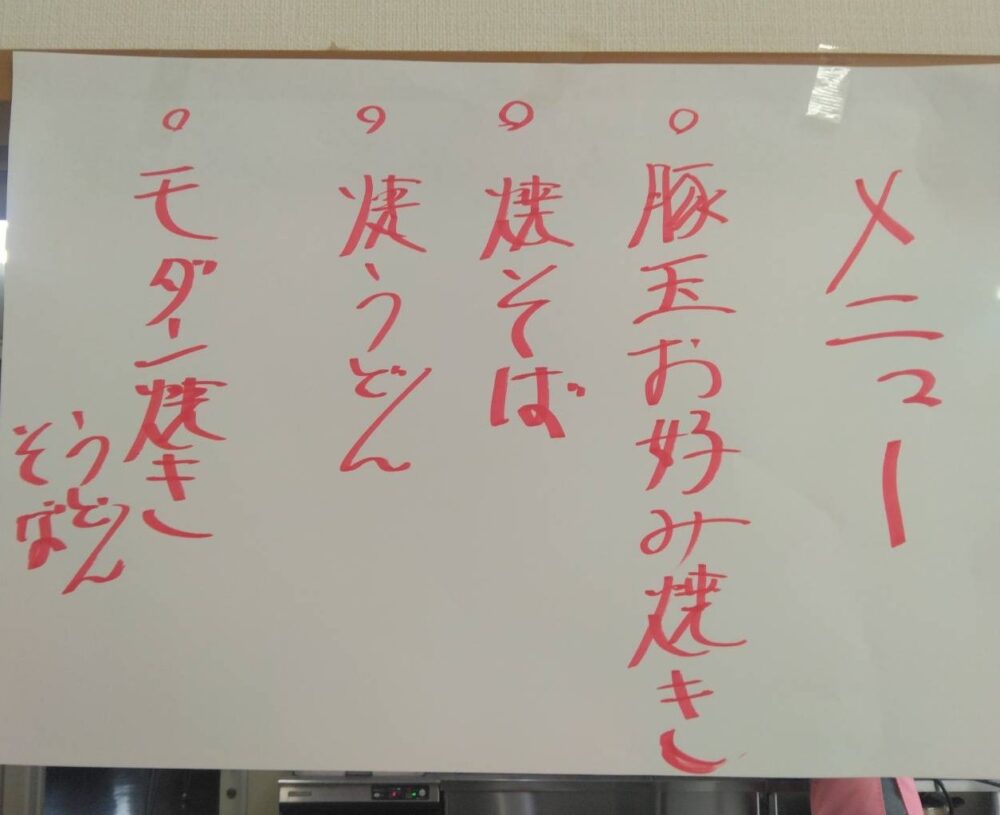 メニュー
○ 豚玉お好み焼き
○ 焼そば
○ 焼うどん
○ モダン焼き
うどん
そば